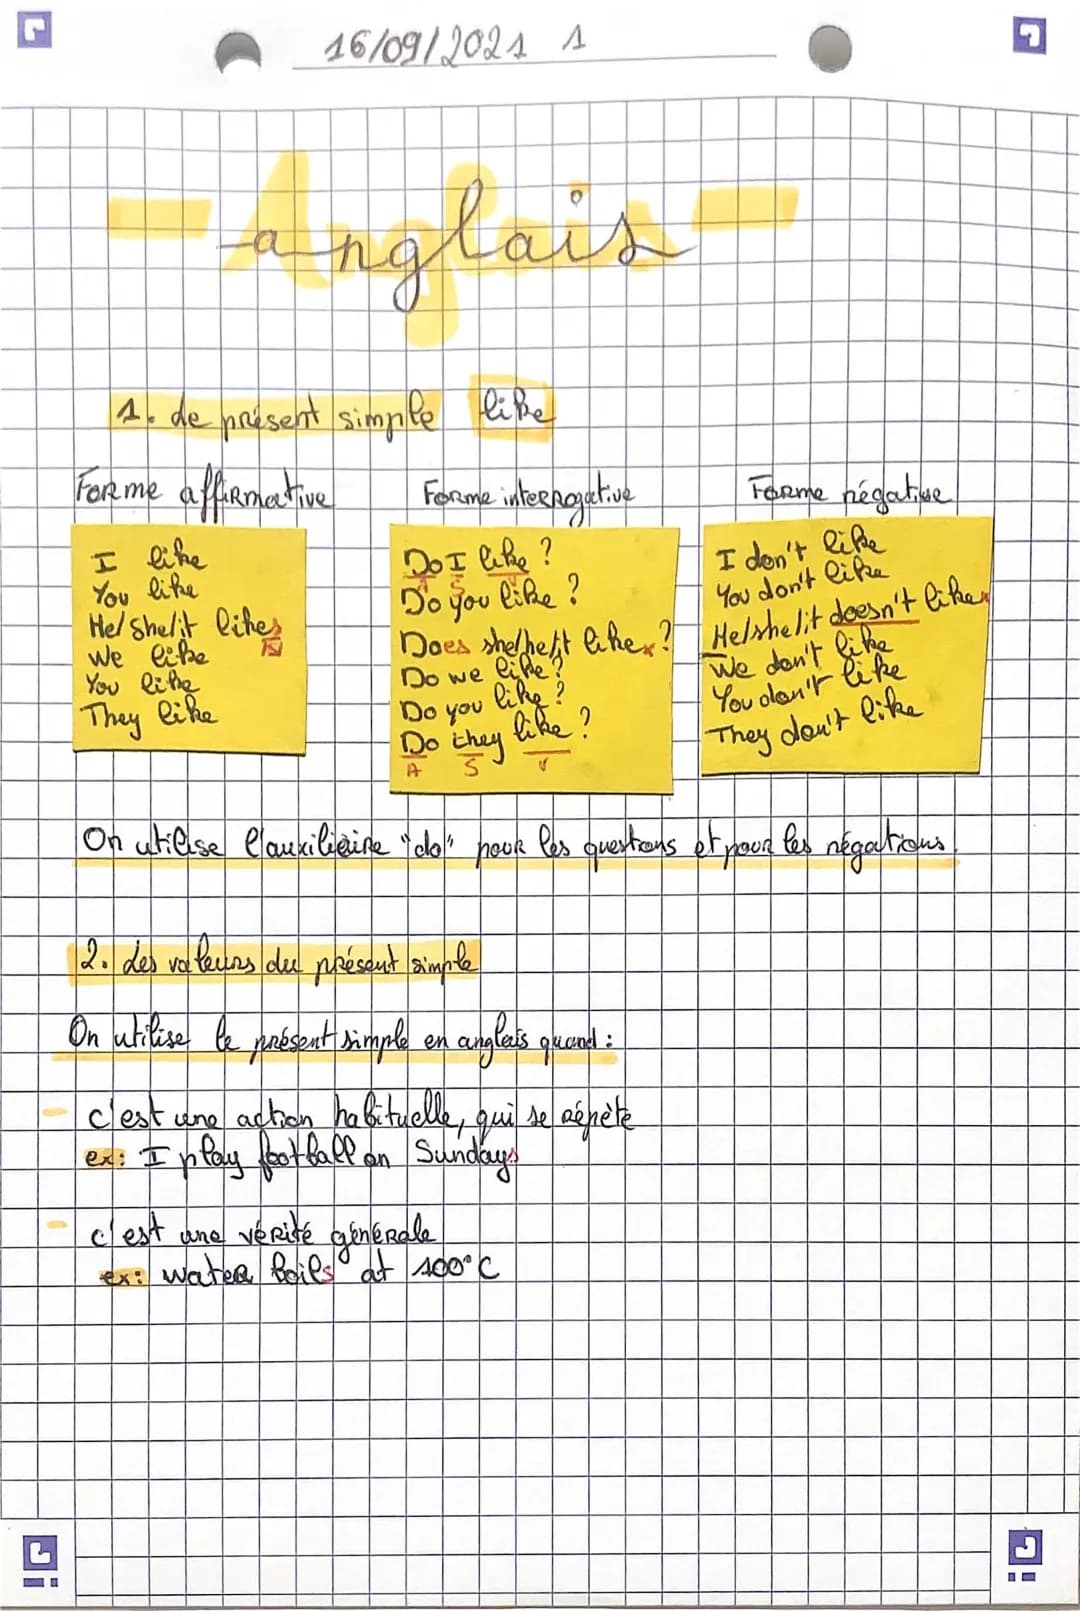 16/09/2021 1
Anglais
1. Le présent simple like
Forme affirmative
I like
You like
He/She/it likes
We like
You like
They like
Forme interrogative
Do I like ?
A S V
Do you like ?
Does she/he/it like x ?
Do we like ?
Do you like ?
Do they like ?
A S V
Forme négative
I don't like
You don't like
He/she/it doesn't like x
We don't like
You don't like
They don't like
On utilise l'auxiliaire "do" pour les questions et pour les négations.
2. Les valeurs du présent simple
On utilise le présent simple en anglais quand :
- c'est une action habituelle, qui se répète
ex: I play football on Sundays
- c'est une vérité générale
ex: water boils at 100°C